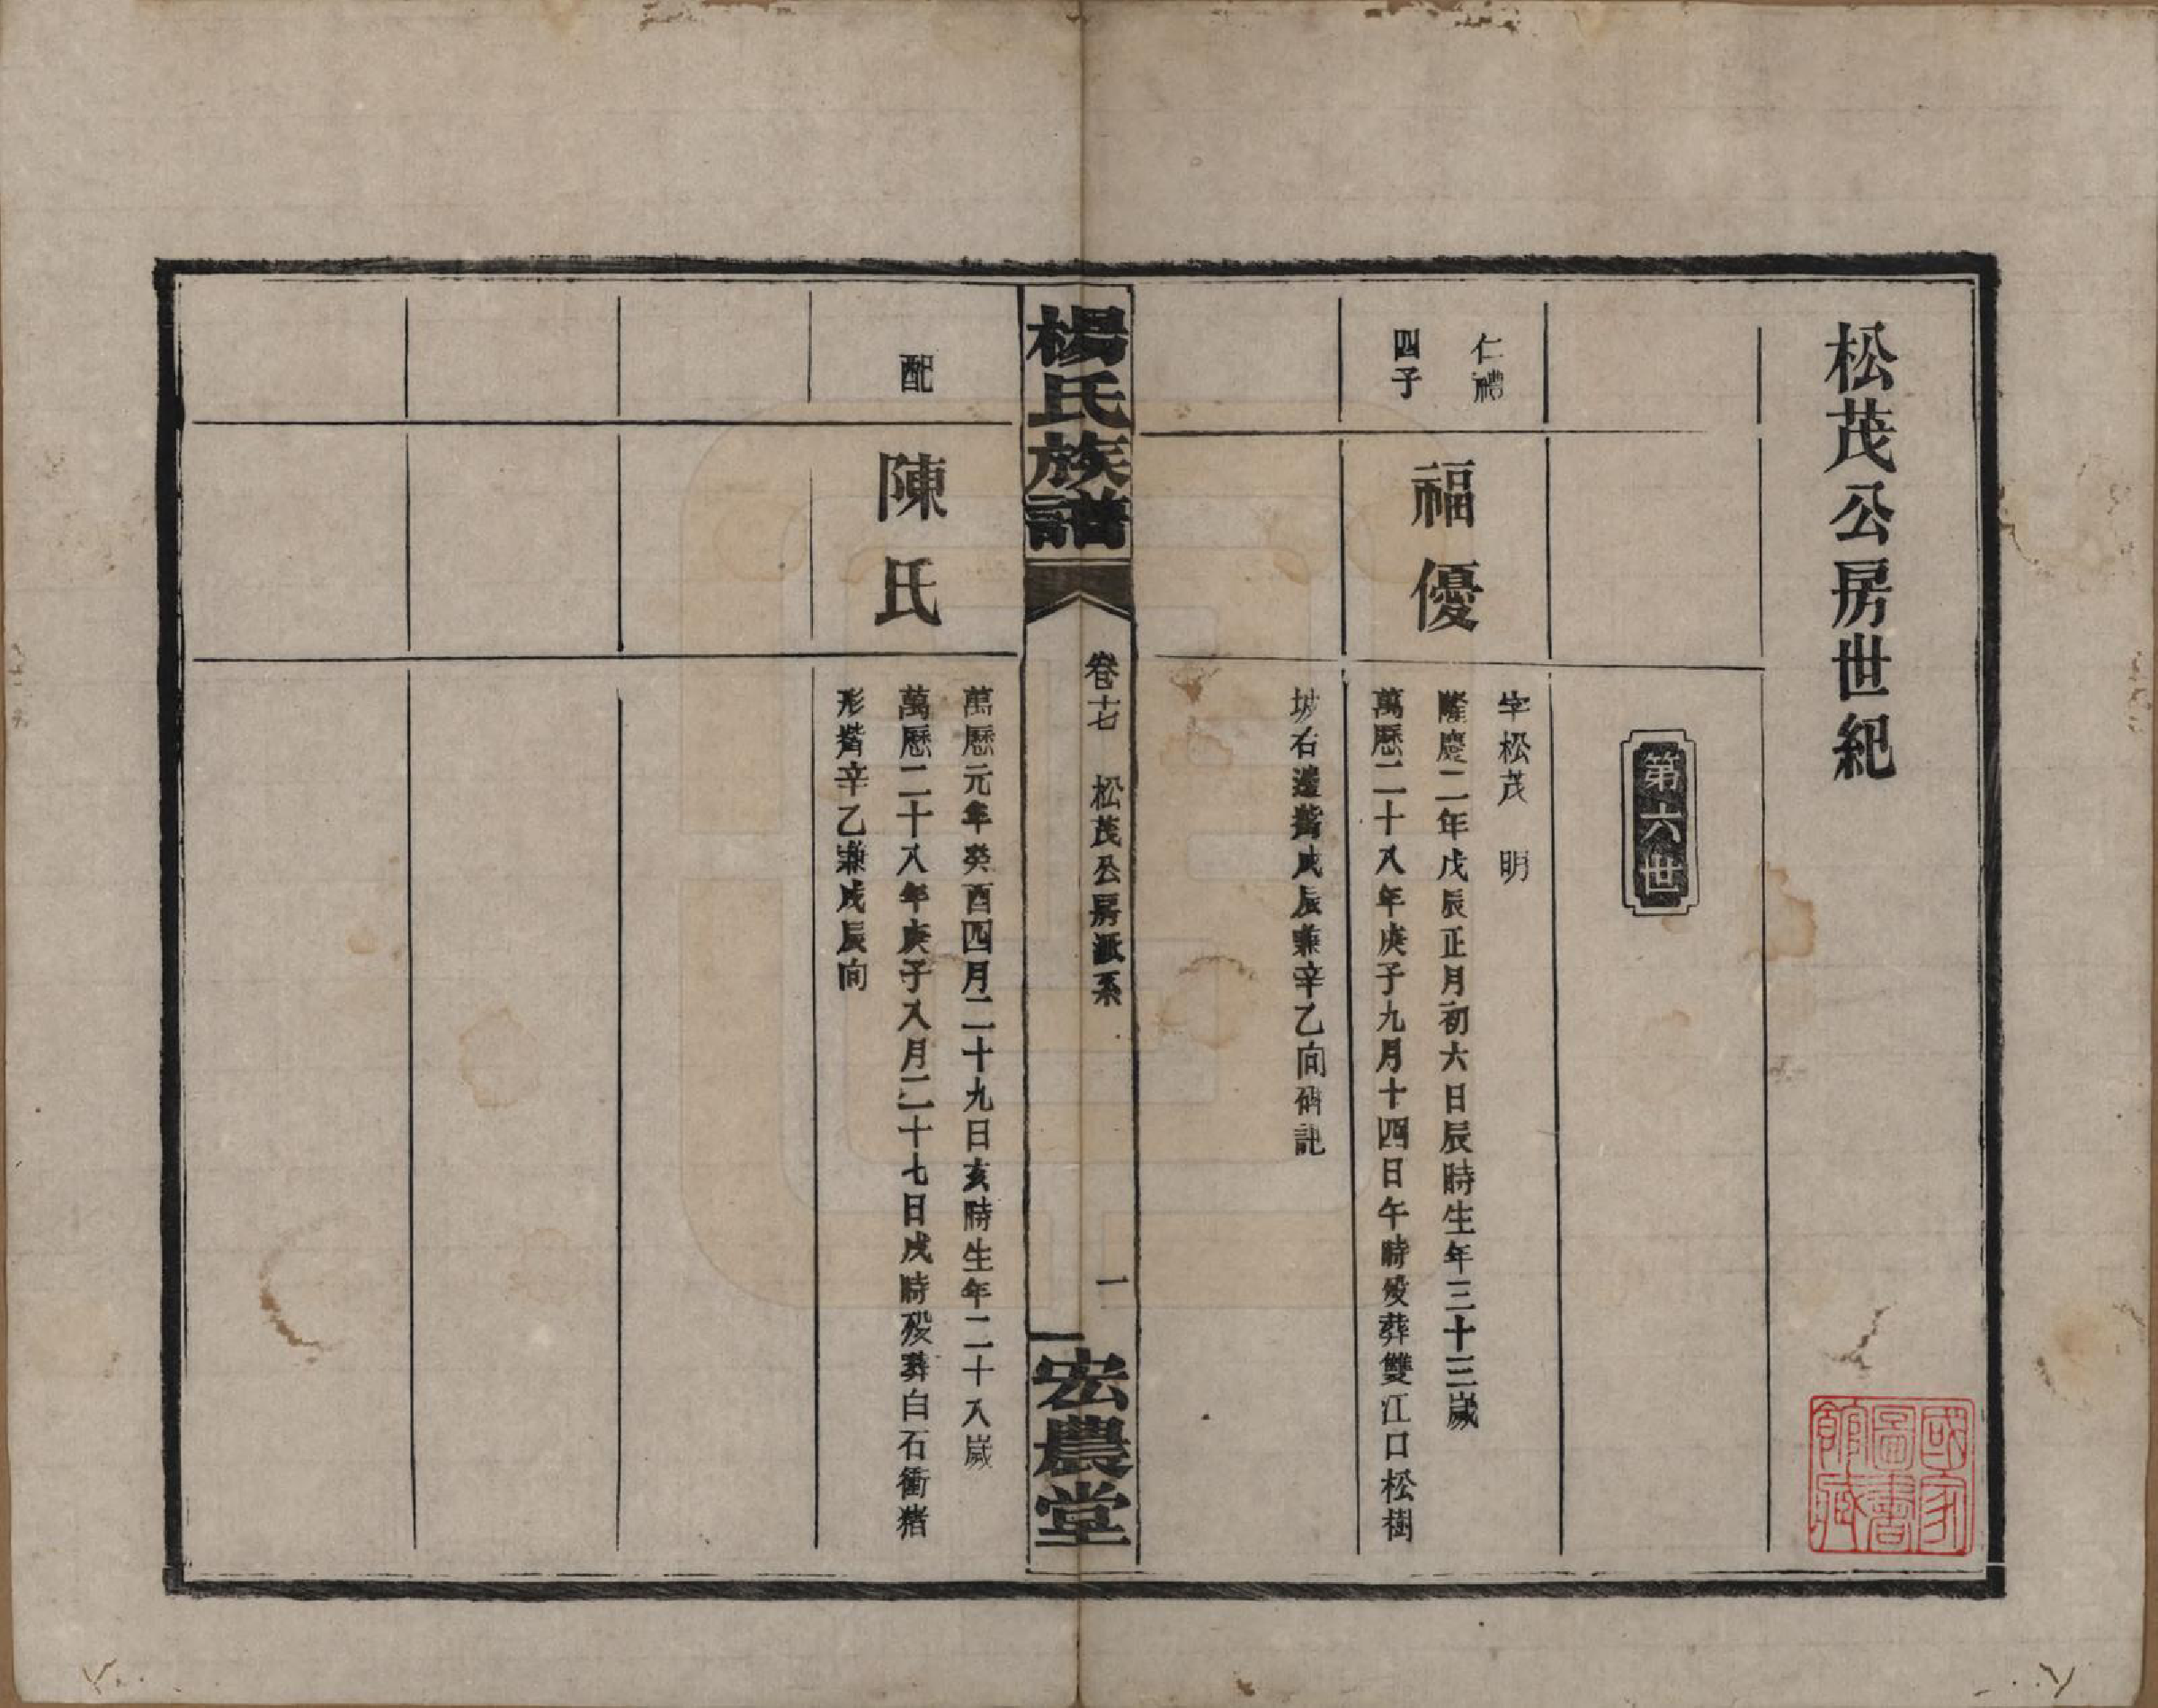 松茂公房世紀
第六世
仁禮
四子
福優
字松茂　明
隆慶二年戊辰正月初六日辰時生年三十三歲
萬厯二十八年庚子九月十四日午時歿葬雙江口松樹
坡右邊塟戌辰兼辛乙向碑記
楊氏族譜
卷十七　松茂公房派系
一
宏農堂
配
陳氏
萬厯元年癸酉四月二十九日亥時生年二十八歲
萬厯二十八年庚子八月二十七日戌時歿葬白石衝猪
形塟辛乙兼戌辰向
國家圖書館藏